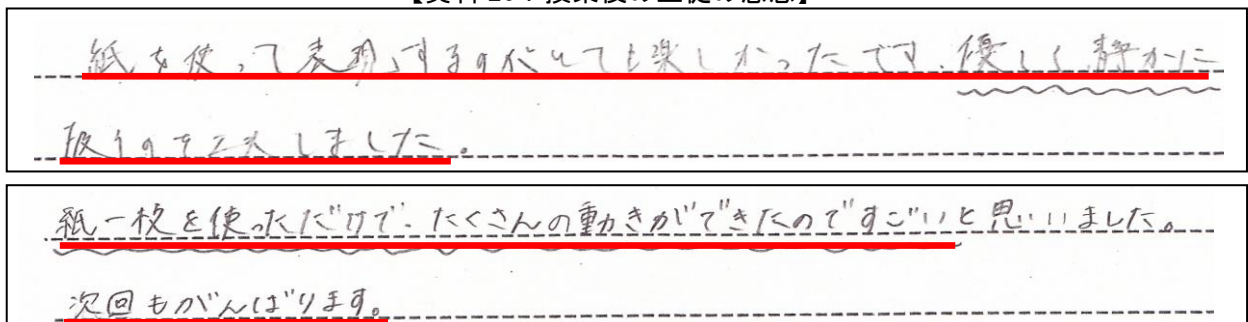 紙を使って表現するのがとても楽しかったです。優しく静かに
扱うのを工夫しました。
紙一枚を使っただけで、たくさんの動きができたのですごいと思いました。
次回もがんばります。